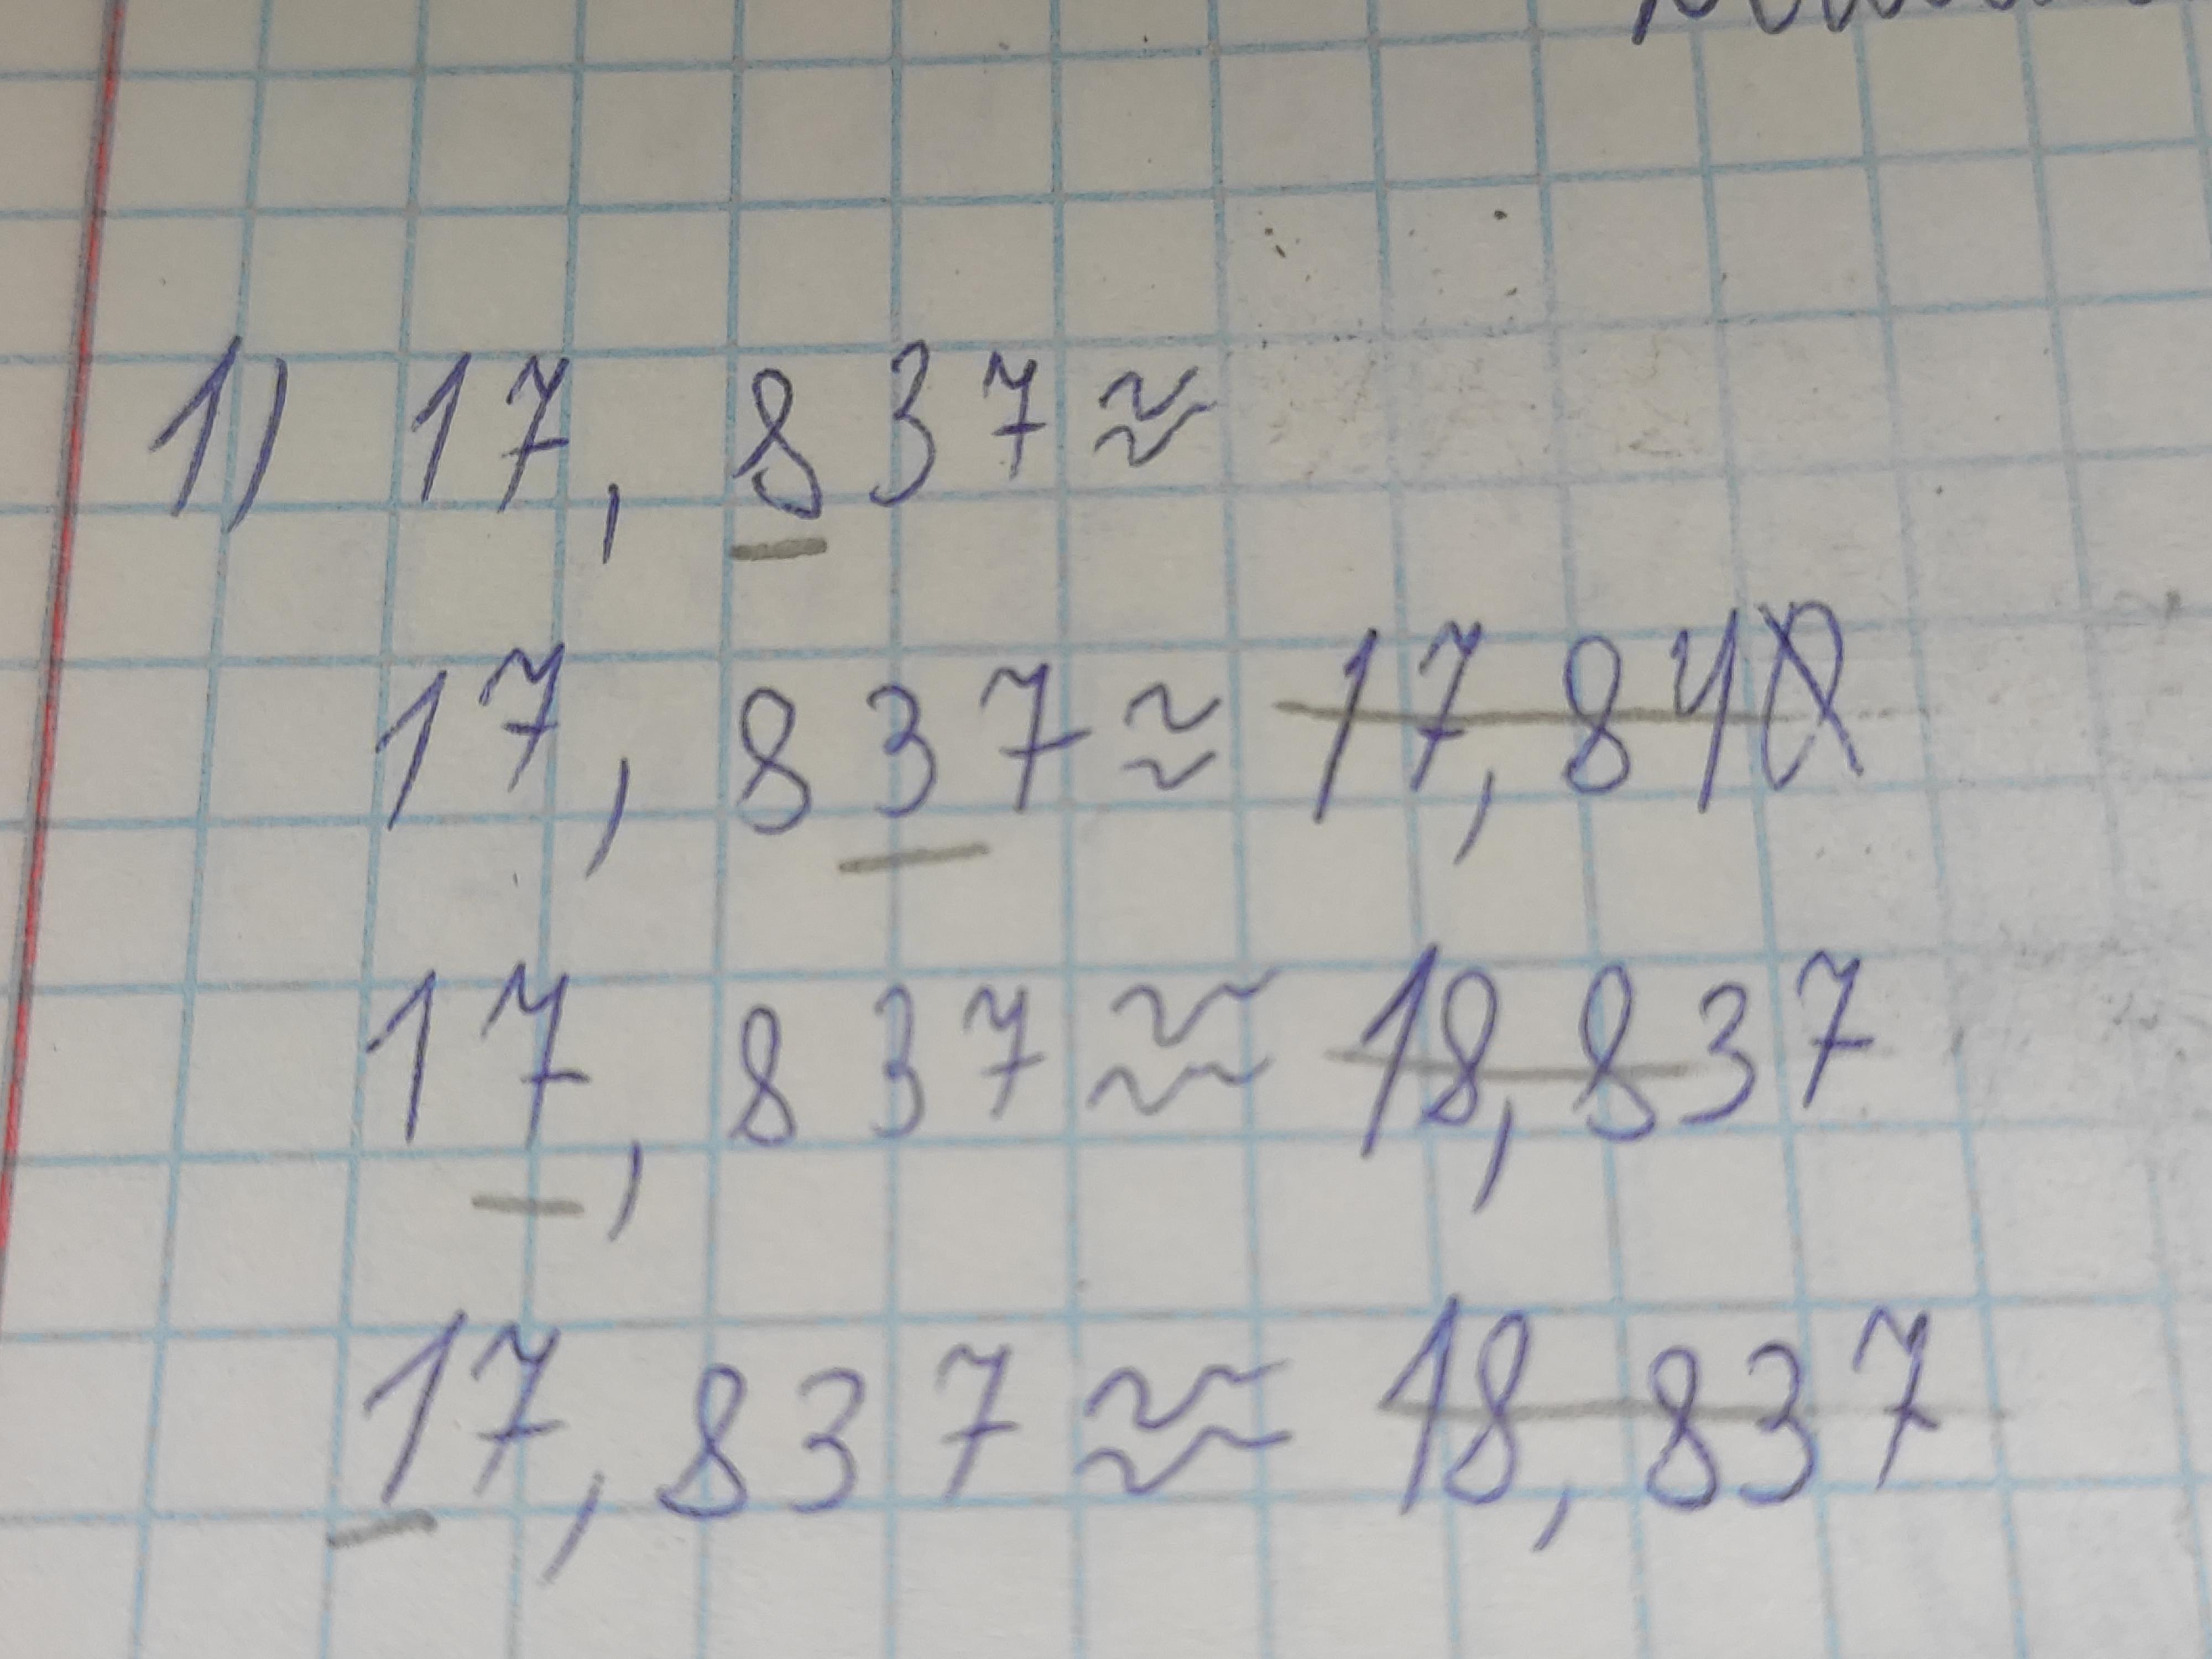 1) 17,837≈
17,837≈17,840
17,837≈18,837
17,837≈18,837